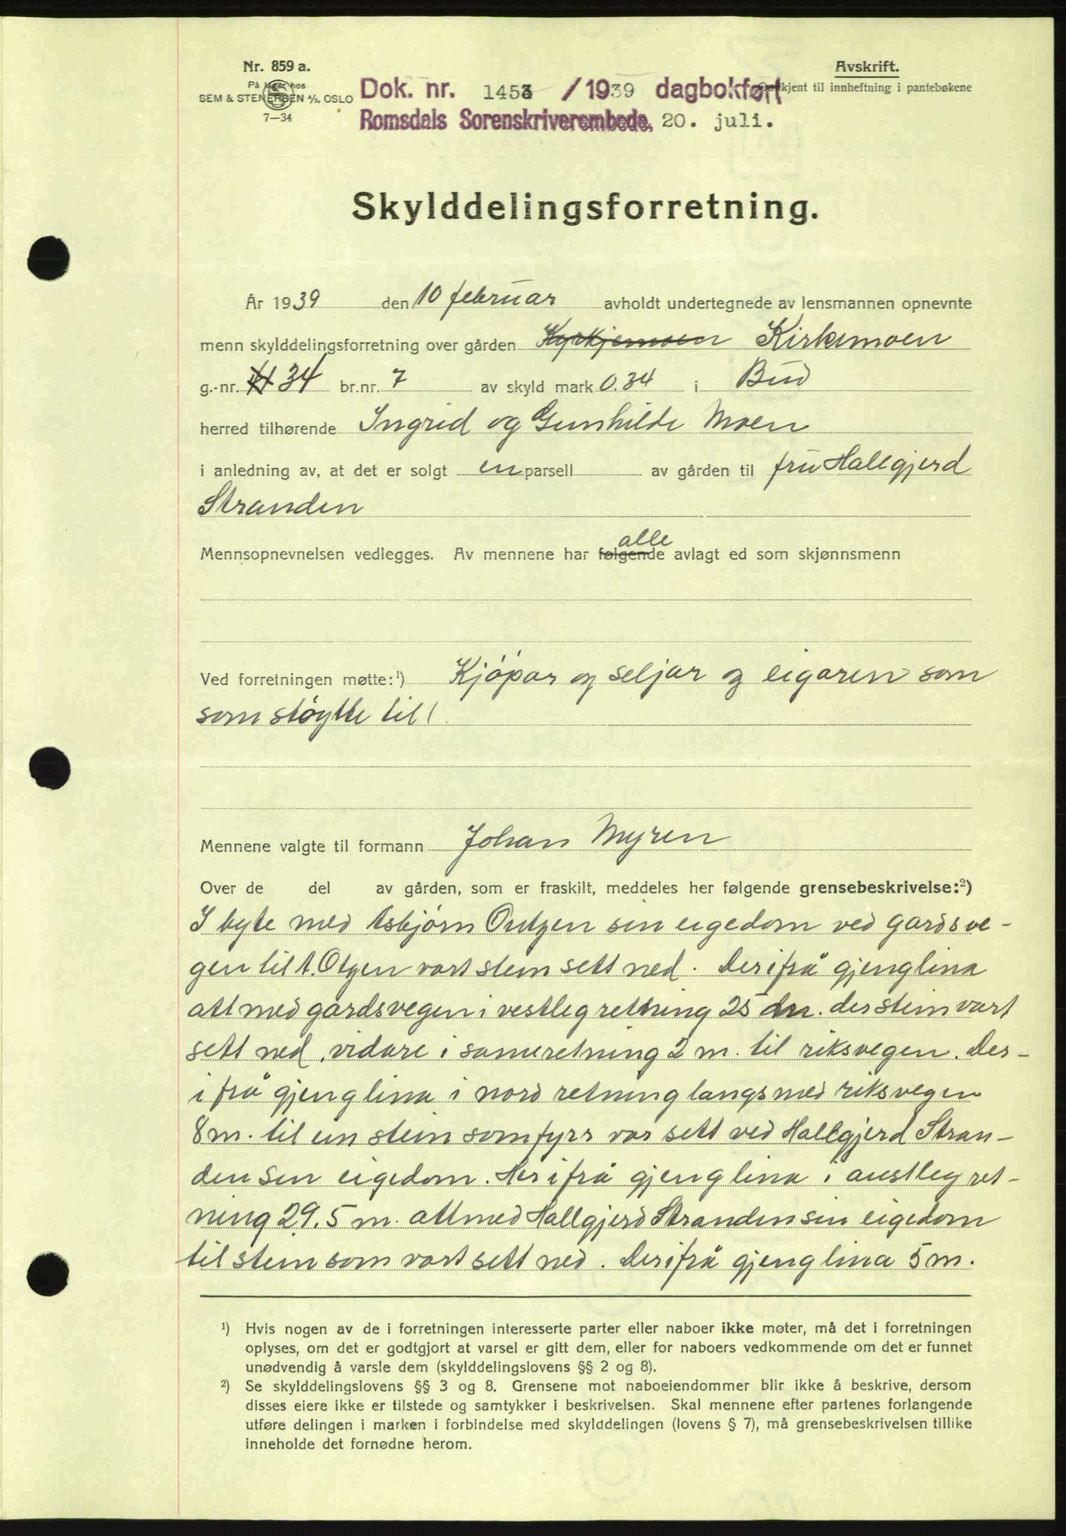 Nr. 859 a.
På lager hos
SEM & STENERSEN A/S, OSLO
7—34
Avskrift.
Godkjent til innheftning i pantebøkene
Dok. nr. 1453 /1939 dagbokført
Romsdals Sorenskriverembede, 20. juli.
Skylddelingsforretning.
År 1939 den 10 februar avholdt undertegnede av lensmannen opnevnte
menn skylddelingsforretning over gården Kyrkjemoen Kirkemoen
g.-nr. 34 br.nr. 7 av skyld mark 0.34 i Bud
herred tilhørende Ingrid og Gunhilde Moen
i anledning av, at det er solgt en parsell av gården til fru Hallgjerd
Stranden
alle
Mennsopnevnelsen vedlegges. Av mennene har følgende avlagt ed som skjønnsmenn
Ved forretningen møtte:¹) Kjøpar og seljar og eigaren som
som støytte til (
Mennene valgte til formann Johan Myren
Over de del av gården, som er fraskilt, meddeles her følgende grensebeskrivelse:²)
I byte med Asbjørn Outzen sin eigedom ved gardsve-
gen til A. Otzen vart stein sett ned. Derifrå gjenglina
att med gardsvegen i vestleg retning 25 m. der stein vart
sett ned, vidare i same retning 2 m. til riksvegen. Der-
ifrå gjeng lina i nord retning langs med riksvegen
8 m. til ein stein som fyrr var sett ved Hallgjerd Stran-
den sin eigedom. Her ifrå gjeng lina i austleg ret-
ning 29.5 m. att med Hallgjerd Stranden sin eigedom
til stein som vart sett ned. Derifrå gjeng lina 5 m.
¹) Hvis nogen av de i forretningen interesserte parter eller naboer ikke møter, må det i forretningen
oplyses, om det er godtgjort at varsel er gitt dem, eller for naboers vedkommende om det er funnet
unødvendig å varsle dem (skylddelingslovens §§ 2 og 8).
²) Se skylddelingslovens §§ 3 og 8. Grensene mot naboeiendommer blir ikke å beskrive, dersom
disses eiere ikke er tilstede og samtykker i beskrivelsen. Skal mennene efter partenes forlangende
utføre delingen i marken i forbindelse med skylddelingen (lovens § 7), må grensebeskrivelsen tillike
inneholde det fornødne herom.